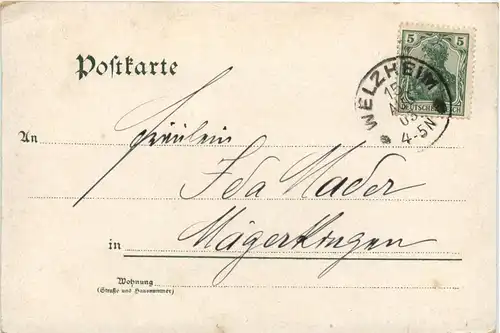 5 5
Postkarte
DEUTSCHES
WELZHEIM
15
03
4-5N
An Fräulein
Ida Mader
in Mägerkingen
Wohnung
(Straße und Hausnummer)